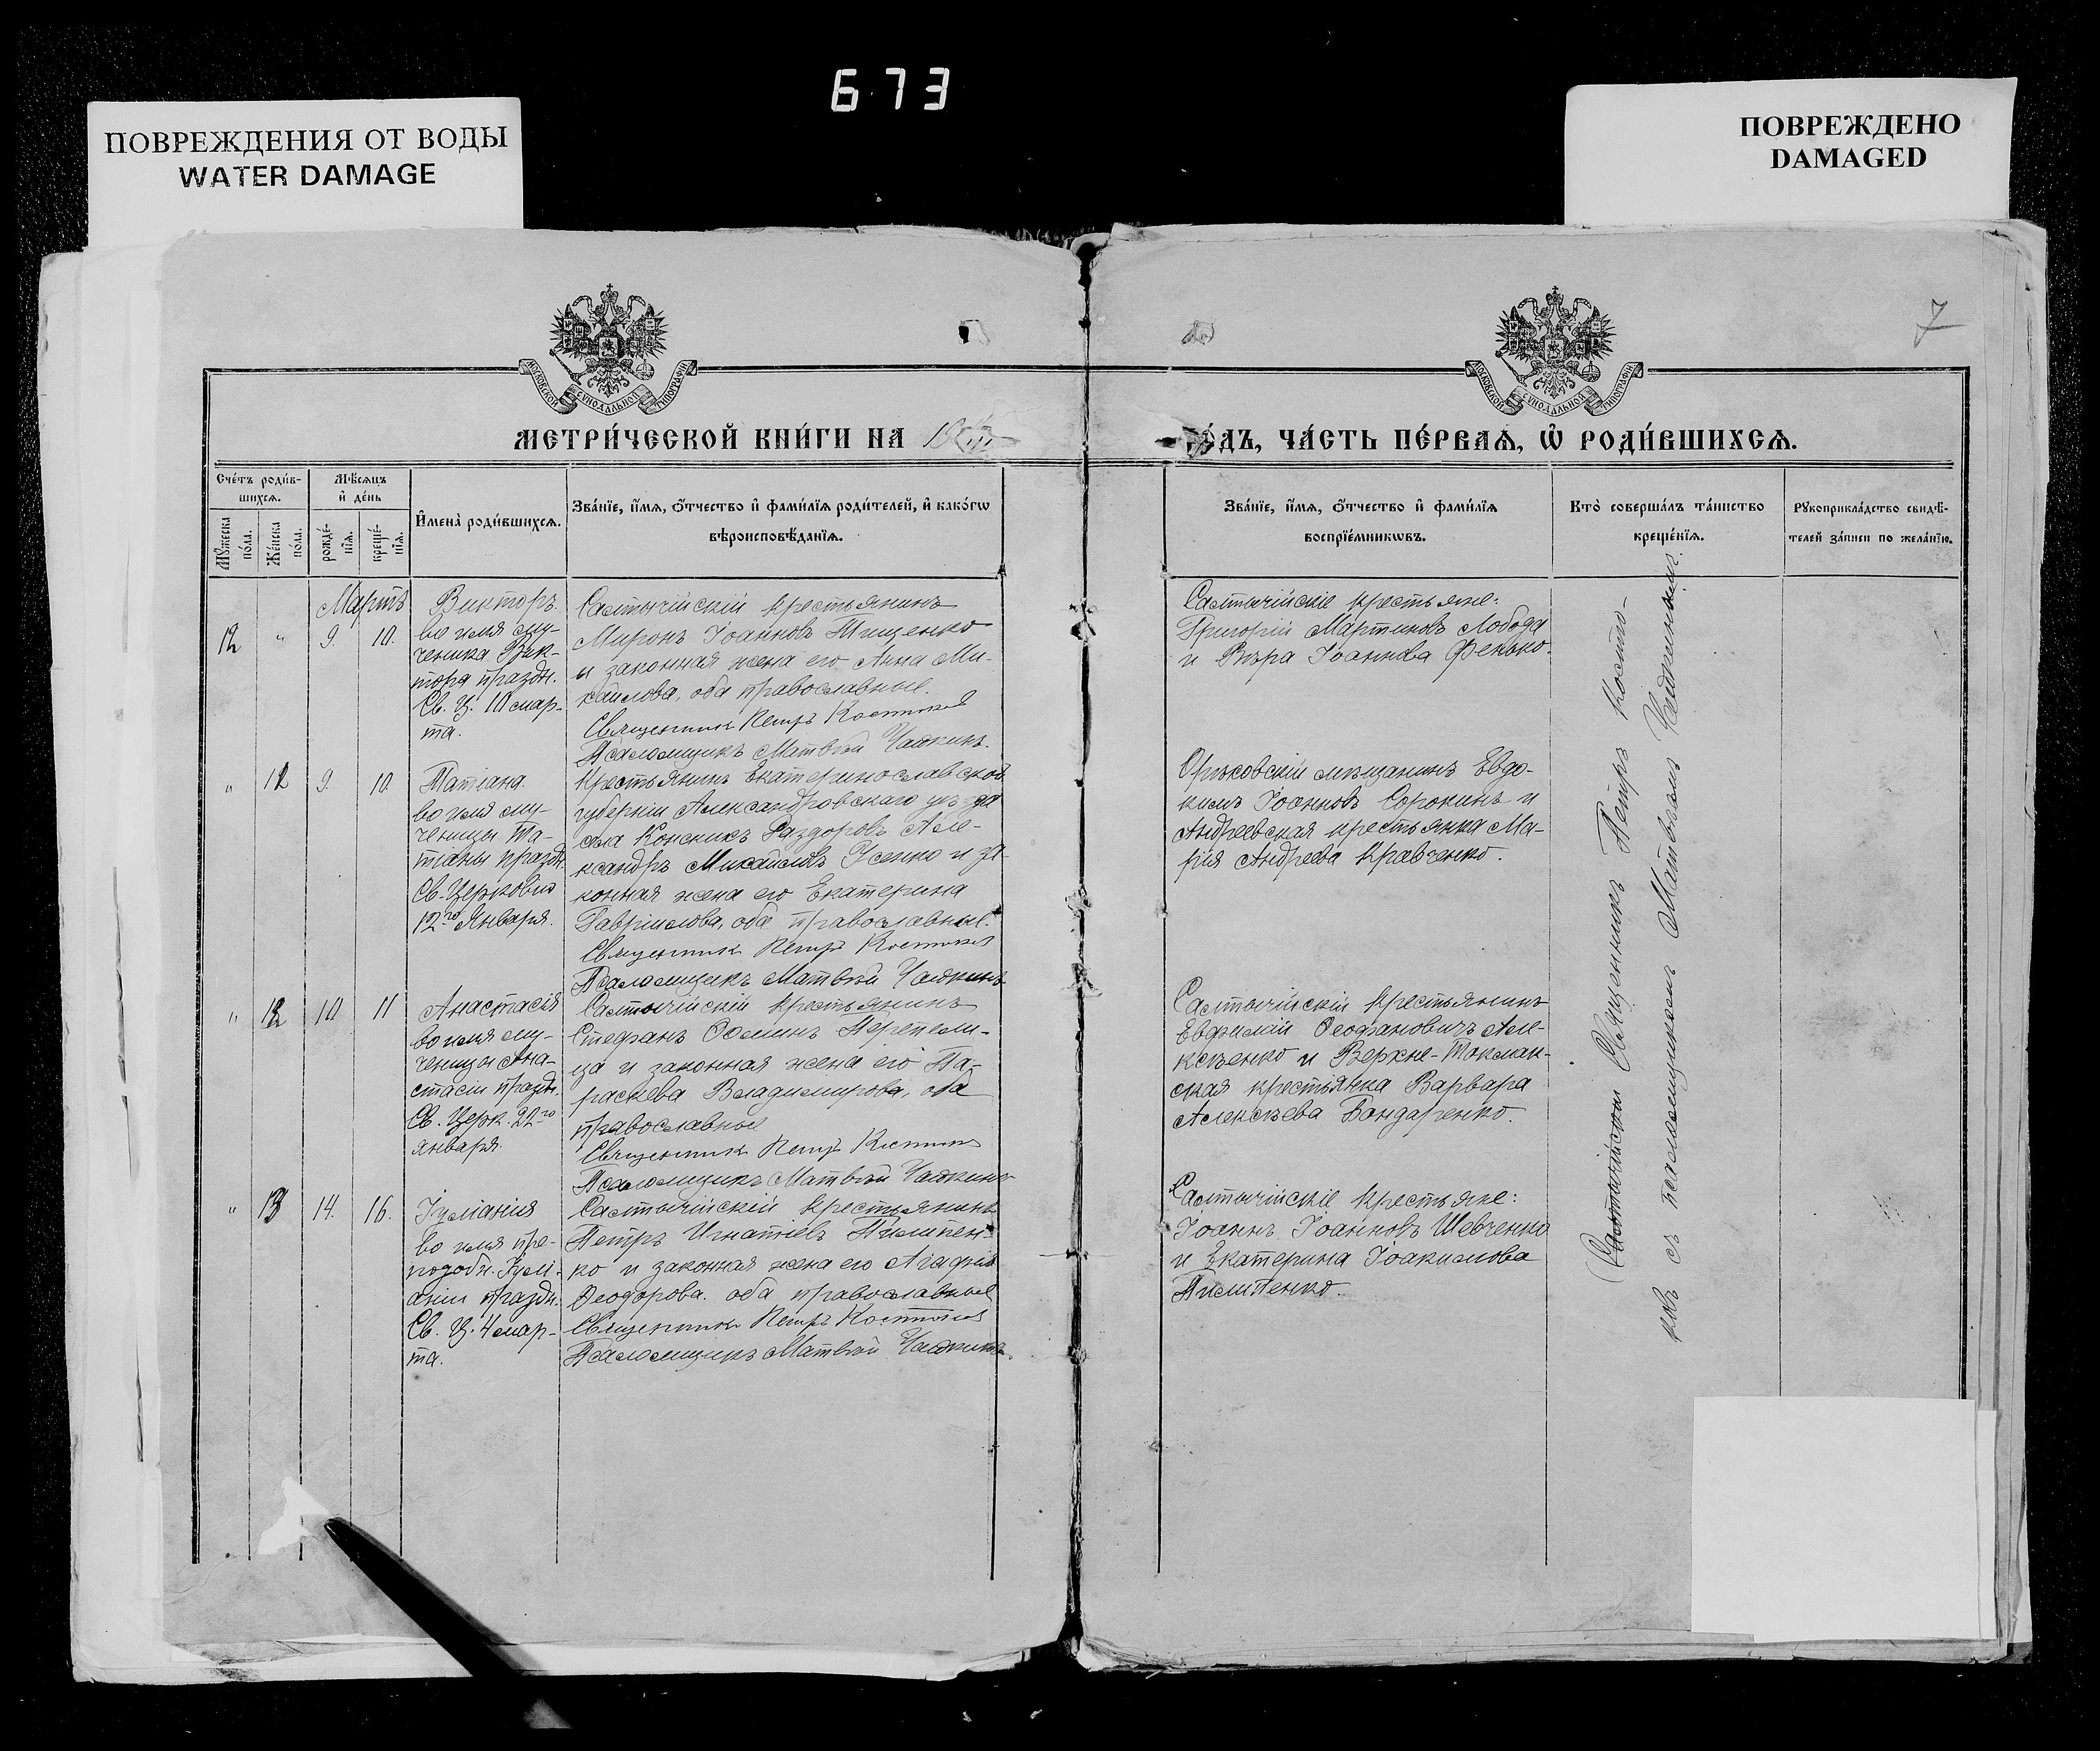 673
ПОВРЕЖДЕНИЯ ОТ ВОДЫ
WATER DAMAGE
ПОВРЕЖДЕНО
DAMAGED
7
МОСКОВСКОЙ СѴНОДАЛЬНОЙ ТИПОГРАФІИ
МОСКОВСКОЙ СѴНОДАЛЬНОЙ ТИПОГРАФІИ
МЕТРИ́ЧЕСКОЙ КНИ́ГИ НА
ГО́ДЪ, ЧА́СТЬ ПЕ́РВАѦ, Ѽ РОДИ́ВШИХСѦ.
Сче́тъ роди́в-
шихсѧ.
Мꙋ́жеска
по́ла.
Же́нска
по́ла.
Мѣ́сѧцъ
и҆ де́нь
рожде́-
нїѧ.
креще́-
нїѧ.
И҆мена̀ роди́вшихсѧ.
Зва́нїе, и҆́мѧ, ѻ҆́тчество и҆ фами́лїѧ роди́телей, и҆ како́гѡ
вѣроисповѣ́данїѧ.
Зва́нїе, и҆́мѧ, ѻ҆́тчество и҆ фами́лїѧ
воспрїе́мникѡвъ.
Кто̀ соверша́лъ та́инство
креще́нїѧ.
Рꙋкоприкла́дство свидѣ́-
телей за́писи по жела́нїю.
Мартъ
12 " 9. 10.
Викторъ.
во имя му-
ченика Вик-
тора праздн.
Св. Ц. 10 мар-
та.
Салтычійскій крестьянинъ
Миронъ Іоанновъ Тищенко
и законная жена его Анна Ми-
хайлова, оба православные.
Священникъ Петръ Костиковъ
Псаломщикъ Матвѣй Чайкинъ.
Салтычійскіе крестьяне:
Григорій Мартиновъ Лобода
и Вѣра Іоаннова Фенько.
" 12 9. 10.
Татіана.
во имя му-
ченицы Та-
тіаны праздн.
Св. Церковію
12го Января.
Крестьянинъ Екатеринославской
губерніи Александровскаго уѣзда
села Конскихъ Раздоровъ Але-
ксандръ Михайловъ Усенко и за-
конная жена его Екатерина
Гавріилова, оба православные.
Священникъ Петръ Костиковъ
Псаломщикъ Матвѣй Чайкинъ
Орѣховскій мѣщанинъ Евдо-
кимъ Іоанновъ Сорокинъ и
Андреевская крестьянка Ма-
рія Андреева Кравченко.
" 12 10. 11
Анастасія
во имя му-
ченицы Ана-
стасіи праздн.
Св. Церк. 22го
января.
Салтычійскій крестьянинъ
Стефанъ Ѳоминъ Перепели-
ца и законная жена его Па-
раскева Владимирова, оба
православные
Священникъ Петръ Костиковъ
Псаломщикъ Матвѣй Чайкинъ
Салтычійскій крестьянинъ
Евфимій Ѳеофановичъ Але-
ксѣенко и Верхне-Токмак-
ская крестьянка Варвара
Алексѣева Бондаренко.
" 13 14. 16.
Іуліанія
во имя пре-
подобн. Іулі-
аніи праздн.
Св. Ц. 4 мар-
та.
Салтычійскій крестьянинъ
Петръ Игнатіевъ Пилипен-
ко и законная жена его Агафія
Ѳеодорова. оба православные
Священникъ Петръ Костиковъ
Псаломщикъ Матвѣй Чайкинъ.
Салтычійскіе крестьяне:
Іоаннъ Іоанновъ Шевченко
и Екатерина Іоакимова
Пилипенко.
Священникъ Петръ Кости-
ковъ съ псаломщикомъ Матвѣемъ Чайкинымъ.